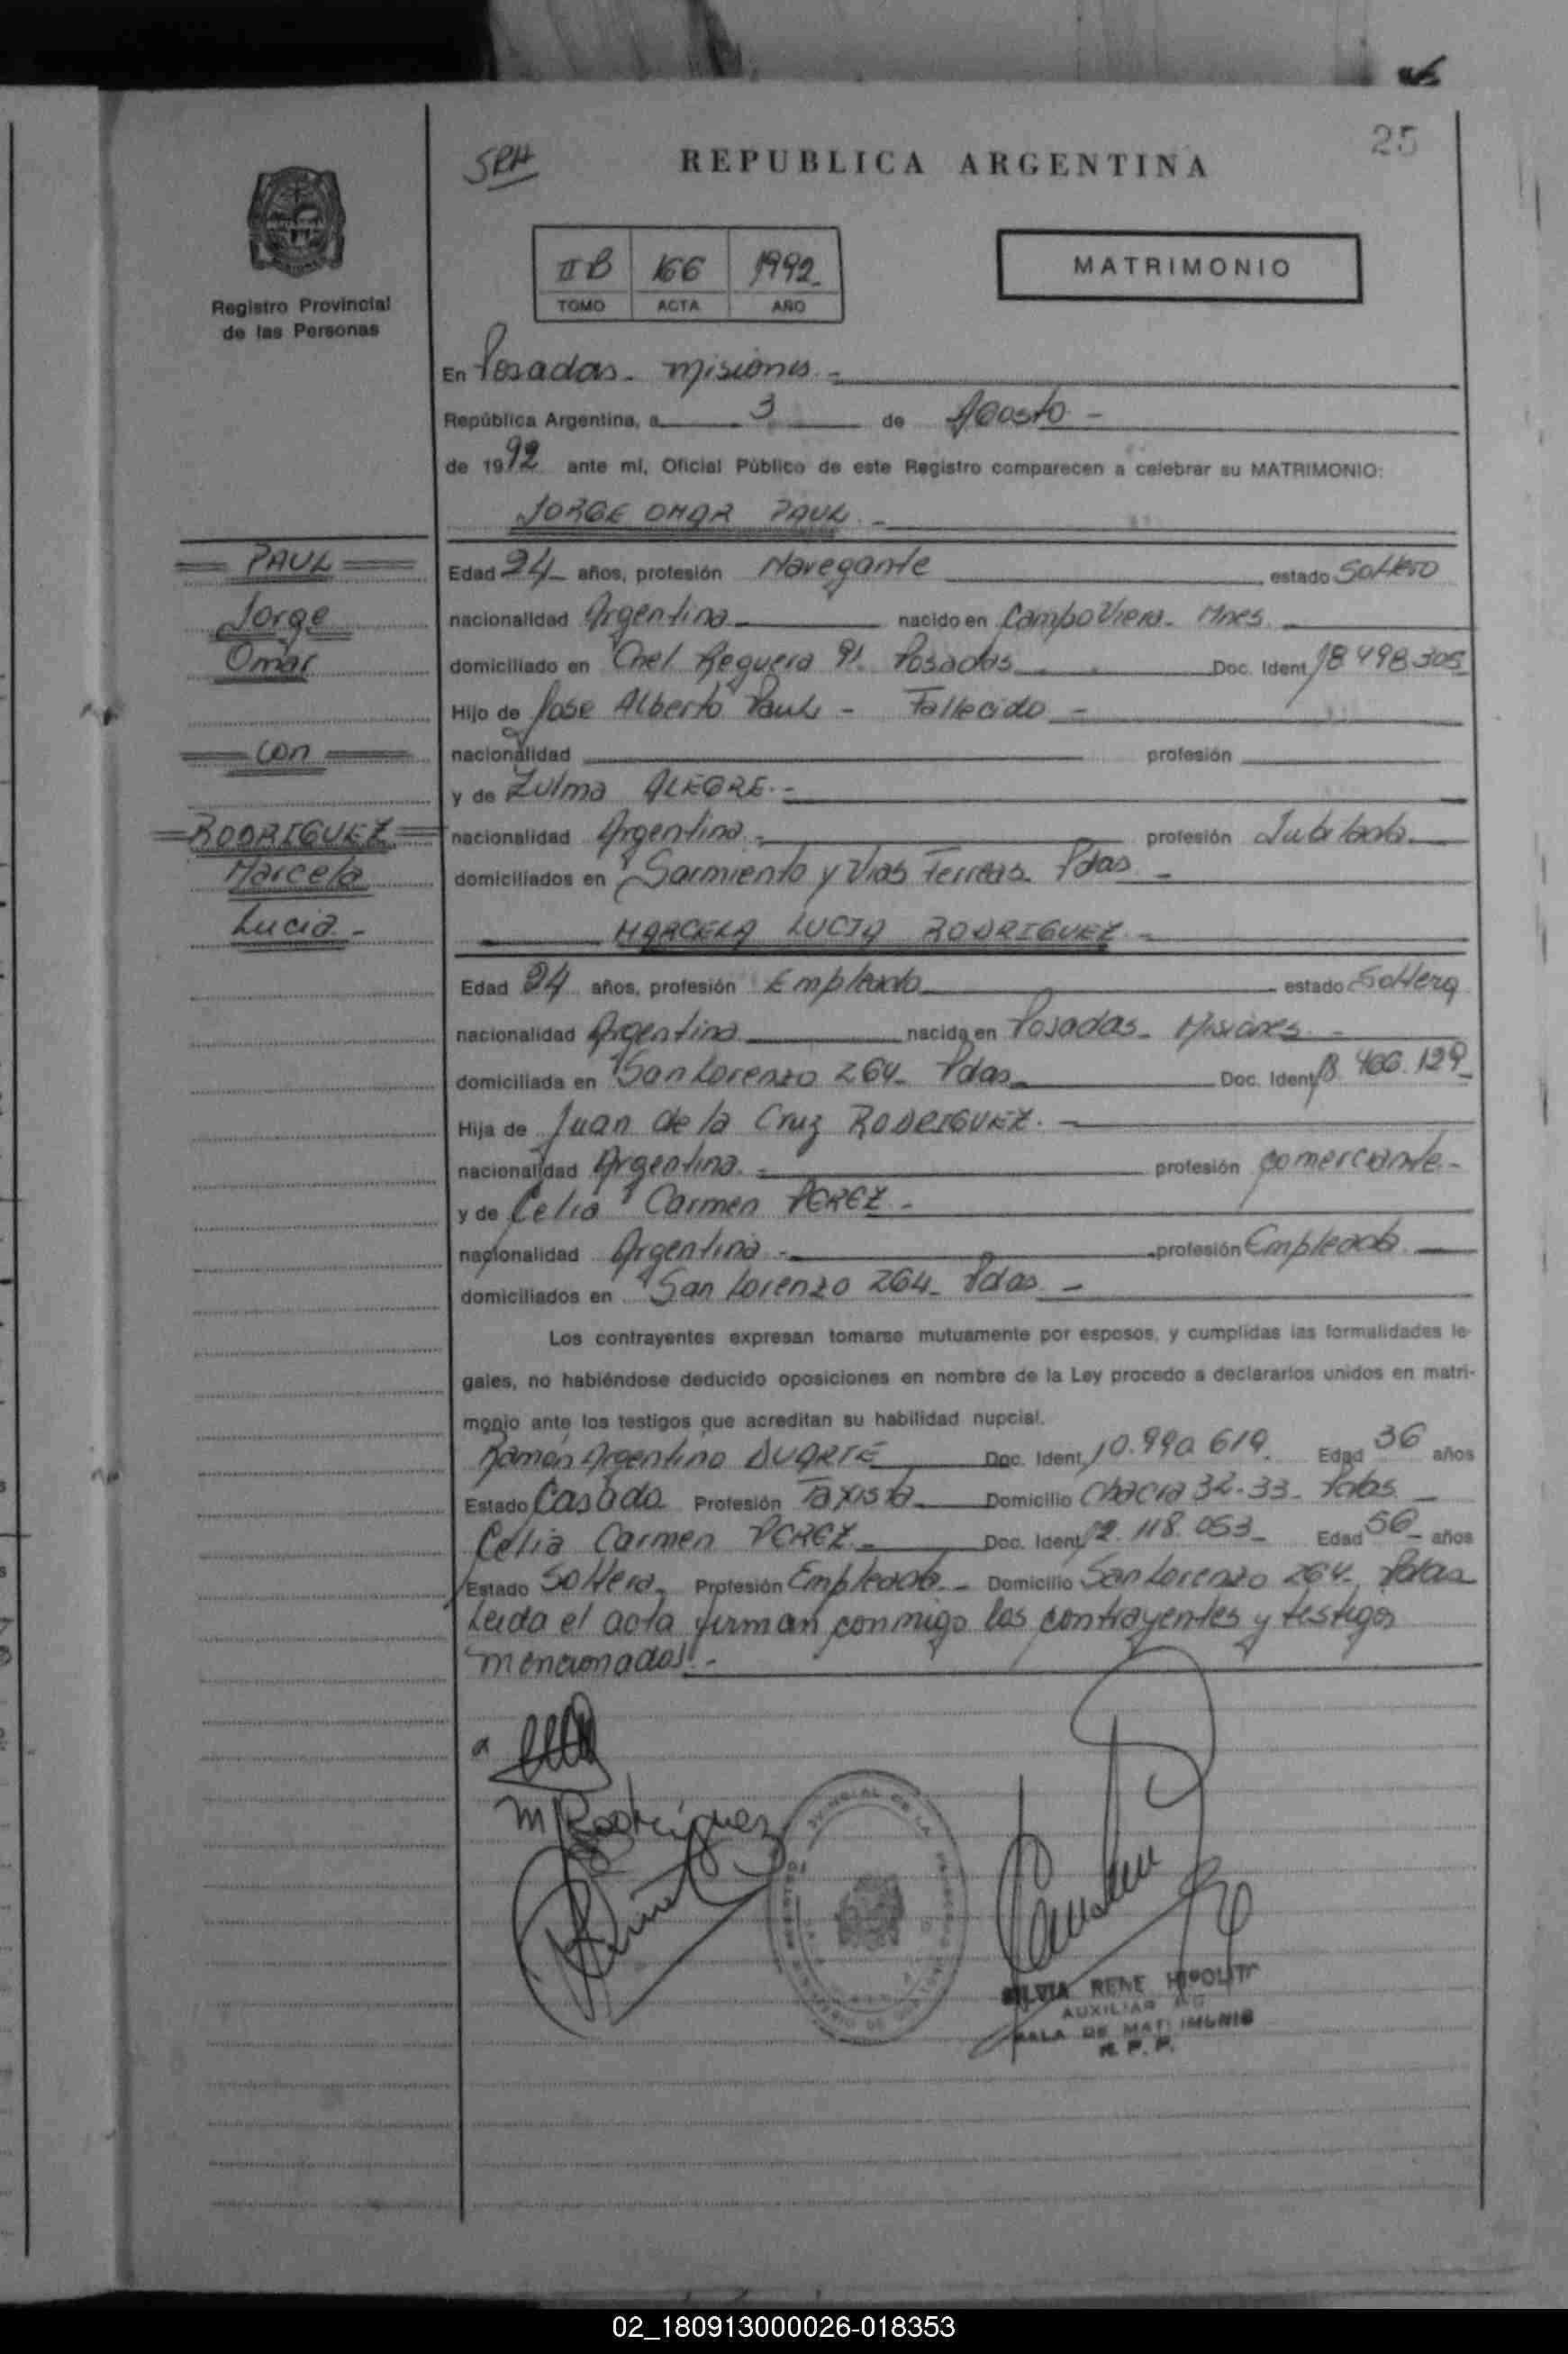 25
SRH
REPUBLICA ARGENTINA
Registro Provincial
de las Personas
II B 166 1992
TOMO ACTA AÑO
MATRIMONIO
En Posadas - Misiones -
República Argentina, a 3 de Agosto -
de 1992 ante mí, Oficial Público de este Registro comparecen a celebrar su MATRIMONIO:
JORGE OMAR PAUL -
PAUL
Jorge
Omar
con
RODRIGUEZ
Marcela
Lucia -
Edad 24 años, profesión Navegante estado Soltero
nacionalidad Argentina nacido en Campo Viera - Mnes
domiciliado en Cnel Reguera Posadas Doc. Ident 18 498.305
Hijo de Jose Alberto Paul - Fallecido -
nacionalidad profesión
y de Zulma ALEGRE -
nacionalidad Argentina - profesión Jubilada
domiciliados en Sarmiento y Vias Ferreas Pdas -
MARCELA LUCIA RODRIGUEZ -
Edad 24 años, profesión Empleada estado Soltera
nacionalidad Argentina nacida en Posadas - Misiones -
domiciliada en San Lorenzo 264 - Pdas Doc. Ident 466.129
Hija de Juan de la Cruz RODRIGUEZ. -
nacionalidad Argentina. - profesión comerciante -
y de Celia Carmen PEREZ -
nacionalidad Argentina - profesión Empleada
domiciliados en San Lorenzo 264 - Pdas -
Los contrayentes expresan tomarse mutuamente por esposos, y cumplidas las formalidades le-
gales, no habiéndose deducido oposiciones en nombre de la Ley procedo a declararlos unidos en matri-
monio ante los testigos que acreditan su habilidad nupcial.
Ramón Argentino DUARTE Doc. Ident. 10.990.619. Edad 36 años
Estado Casado Profesión Taxista Domicilio Chacra 32-33 - Pdas -
Celia Carmen PEREZ - Doc. Ident 2.118.053 - Edad 56 años
Estado Soltera - Profesión Empleada - Domicilio San Lorenzo 264 - Pdas
Leida el acta firman conmigo los contrayentes y testigos
mencionados. -
M Rodríguez
SILVIA RENE HIPOLITO
AUXILIAR
SALA DE MATRIMONIO
R. P. P.
02_180913000026-018353